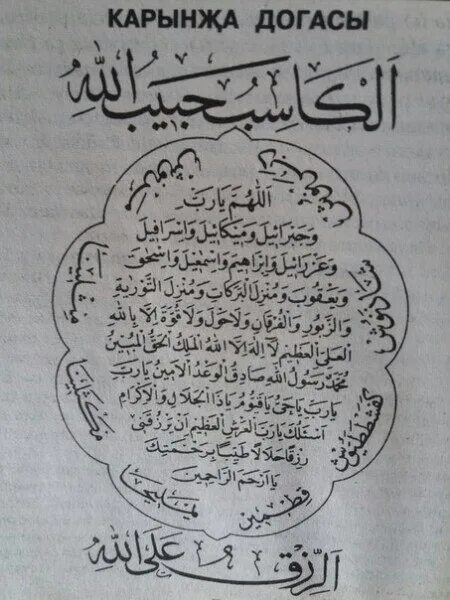 КАРЫНҖА ДОГАСЫ
اَلْكَاسِبُ حَبِيبُ اللّٰهِ
اَللّٰهُمَّ يَارَبَّ
وَجَبْرَائِيلَ وَمِيكَائِيلَ وَاِسْرَافِيلَ
وَعَزْرَائِيلَ وَاِبْرَاهِيمَ وَاِسْمٰعِيلَ وَاِسْحٰقَ
وَيَعْقُوبَ وَمُنْزِلَ الْبَرَكَاتِ وَمُنْزِلَ التَّوْرٰيةِ
وَالزَّبُورِ وَالْفُرْقَانِ وَلَا حَوْلَ وَلَا قُوَّةَ اِلَّا بِاللّٰهِ
الْعَلِىِّ الْعَظِيمِ لَا اِلٰهَ اِلَّا اللّٰهُ الْمَلِكُ الْحَقُّ الْمُبِينُ
مُحَمَّدٌ رَسُولُ اللّٰهِ صَادِقُ الْوَعْدِ الْاَمِينُ يَارَبِّ
يَارَبِّ يَاحَىُّ يَاقَيُّومُ يَاذَا الْجَلَالِ وَالْاِكْرَامِ
اَسْئَلُكَ يَارَبَّ الْعَرْشِ الْعَظِيمِ اَنْ تَرْزُقَنِى
رِزْقًا حَلَالًا طَيِّبًا بِرَحْمَتِكَ
يَا اَرْحَمَ الرَّاحِمِينَ
يمليخا
مكثلينا
مثلينا
مرنوش
دبرنوش
شاذنوش
كفشططيوش
قطمير
اَلرِّزْقُ عَلَى اللّٰهِ